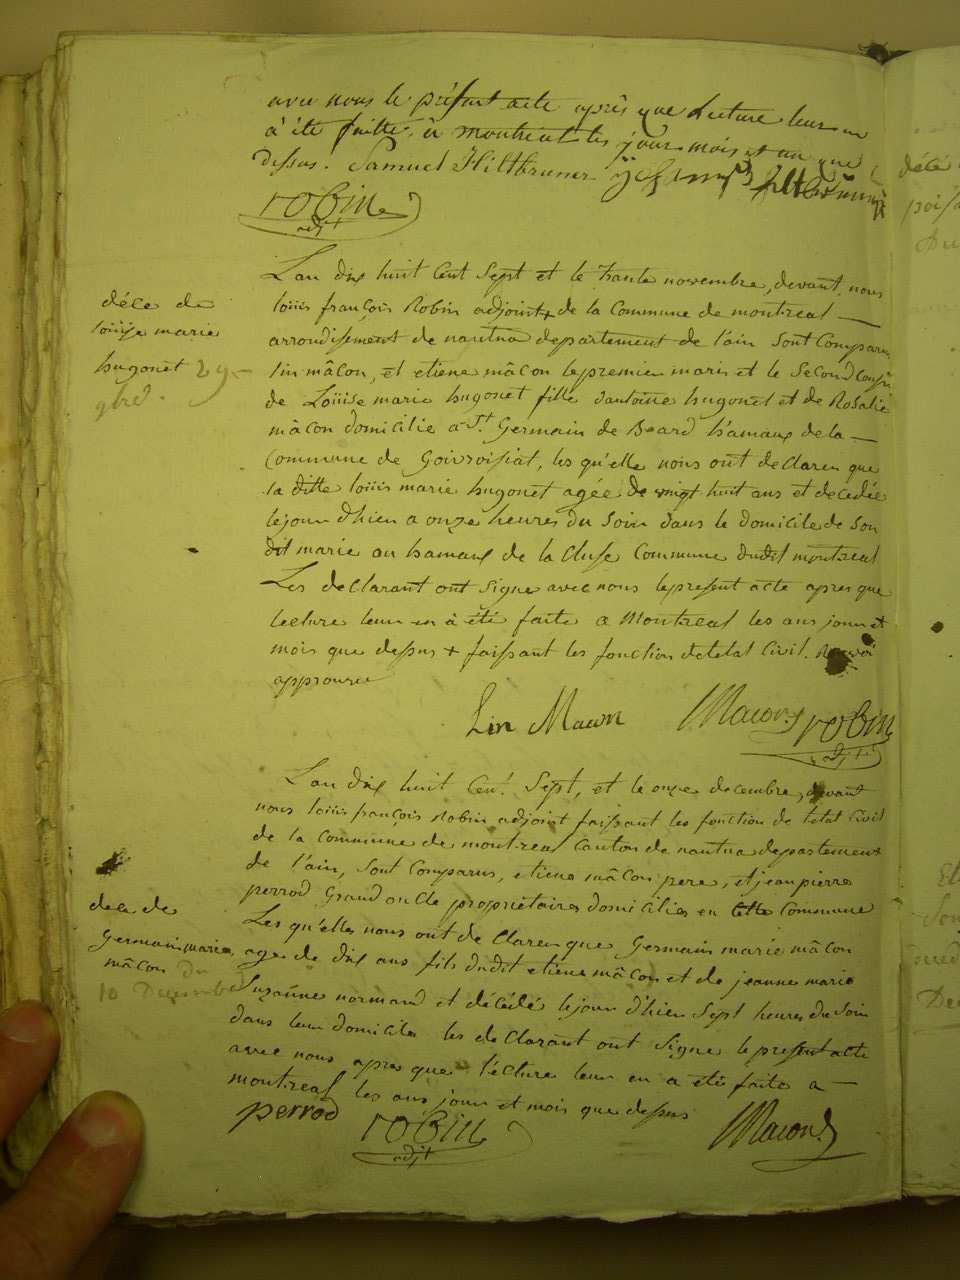 avec nous le présent acte après que Lecture leur en
à été faitte, à montreal les jour mois et an que
dessus. Samuel Hiltbruner
robin
adjt
décé de
loüise marie
hugonet 29
9bre.
L'an dix huit Cent Sept et le trante novembre, devant nous
loüis françois Robin adjoint + de la Commune de montreal —
arrondissement de nantua departement de l'ain sont Comparu
lin mâcon, et etiene mâcon le premier maris et le second Cousin
de Loüise marie hugonet fille dantoine hugonet et de Rosalie
mâcon domicilié a St. Germain de Beard hamaux de la —
Commune de Goivroisiat, les qu'elle nous ont declaren que
la ditte loüis marie hugonet agée de vingt huit ans et decedée
le jour d'hien a onze heures du Soin dans le domicile de Son
dit marie au hamaux de la Cluse Commune dudit montreal
Les declarant ont signe avec nous le present acte apres que
lecture leur en à été faite a Montreal les ans jour et
mois que dessus + faissant les fonction detetat Civil. Renvoi
approuvée
Lin Macon Macon robin
adjt
L'an dix huit Cent Sept, et le onze decembre, devant
nous loüis françois Robin adjoint faissant les fonction de letat Civil
de la commune de montreal Canton de nantua departement
de l'ain, sont Comparus, etiene mâcon pere, et jean pierre
perrod Grand oncle propriétaires domicilies en cette Commune
déce de
Germain marie
mâcon du
10 Decembre
Les qu'elles nous ont de Claren que Germain marie mâcon
age de dix ans fils dudit etiene mâcon et de jeanne marie
Suzanne normand et décédé le jour d'hien Sept heures du Soin
dans leur domicile les declarant ont Signe le present acte
avec nous apres que lécture leur en a été faite a —
montreal les ans jour et mois que dessus
perrod robin Macon
adjt